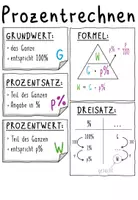 Prozentrechnen
GRUNDWERT:
• das Ganze
• entspricht 100%
G
PROZENTSATZ:
• Teil des Ganzen
• Angabe in %
p%
PROZENTWERT:
• Teil des Ganzen
• entspricht p%
W
FORMEL:
W
G · p%
W = G · p%
DREISATZ:
%
100%
1%
p%
G
W